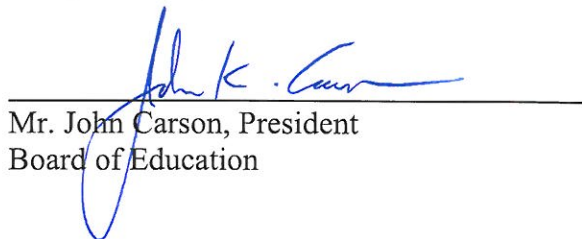 John K. Carson
Mr. John Carson, President
Board of Education